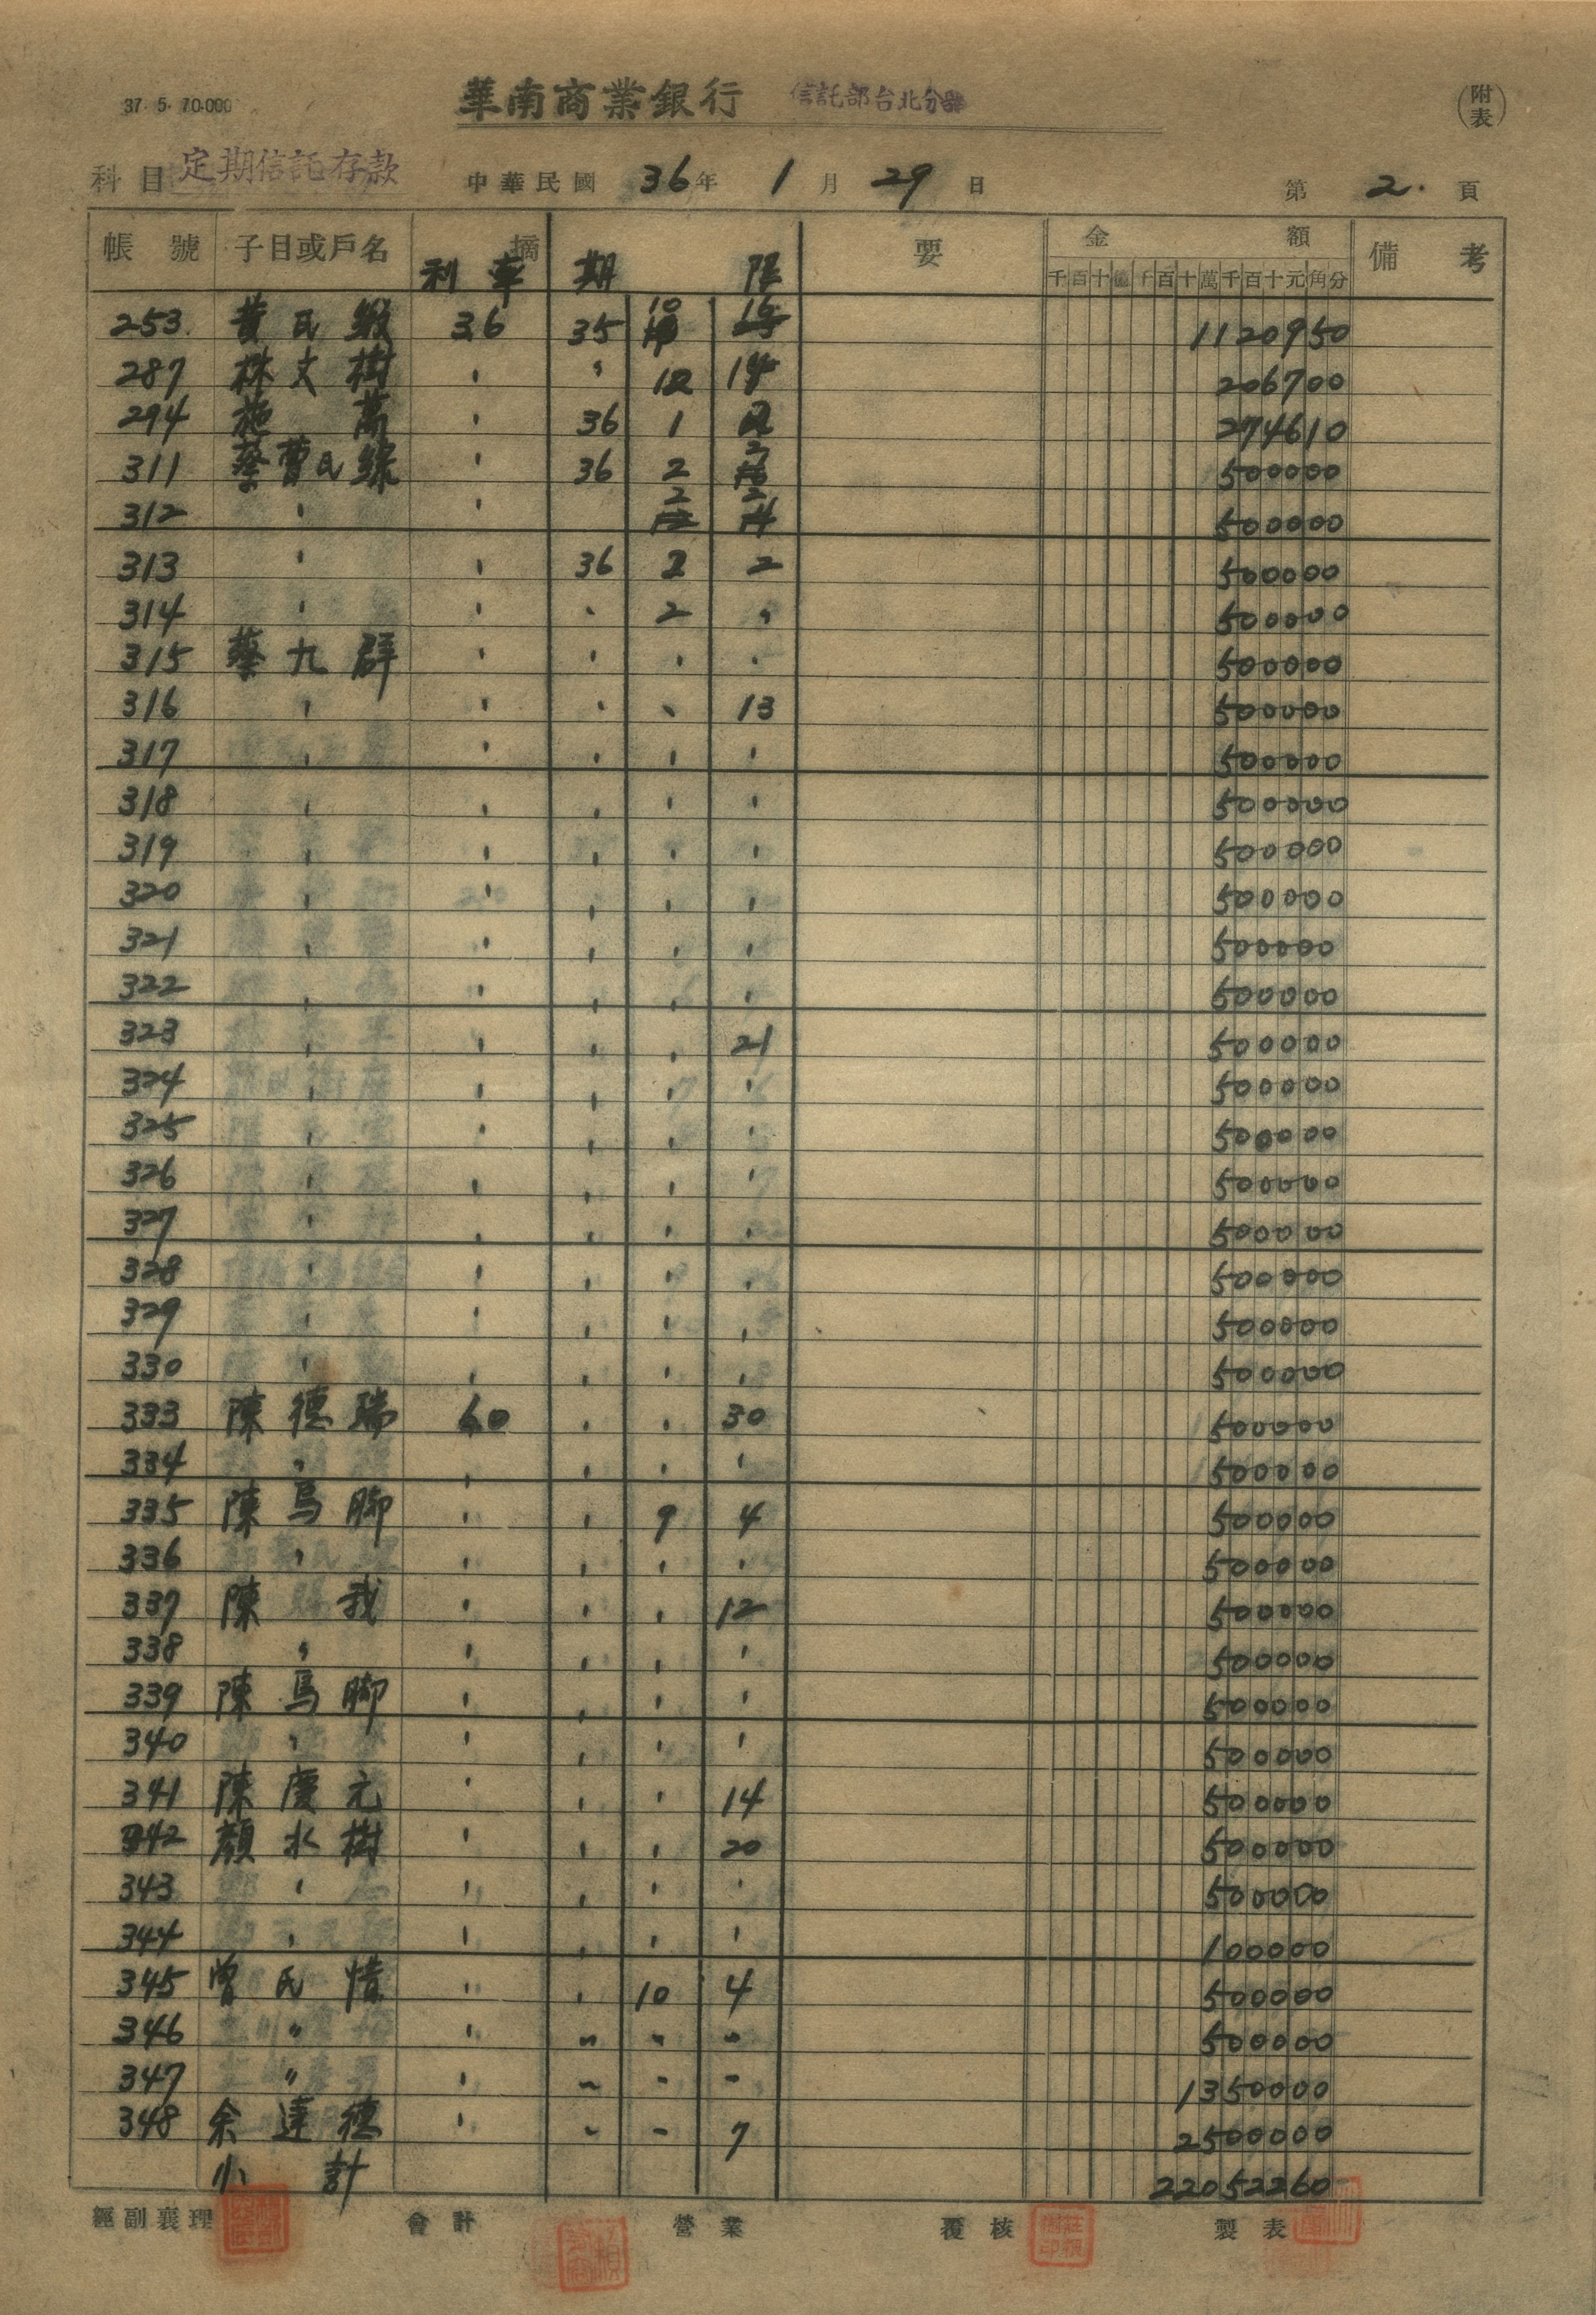 37. 5. 70.000 華南商業銀行 信託部台北分部 (附表)
科目 定期信託存款 中華民國 36年 1月 29日 第 2. 頁
帳號 子目或戶名 摘 要 金額 備考
利率 期限 千百十億千百十萬千百十元角分
253. 黃氏緞 36 35 10 1120950
287 林文樹 ' ' 12 14 206700
294 施萬 ' 36 1 274610
311 蔡曹氏綠 ' 36 2 2 500000
312 ' ' 2 2 500000
313 ' ' 36 2 2 500000
314 ' ' ' 2 ' 500000
315 蔡九群 ' ' ' ' 500000
316 ' ' ' ' 13 500000
317 ' ' ' ' ' 500000
318 ' ' ' ' ' 500000
319 ' ' ' ' ' 500000
320 ' ' ' ' ' 500000
321 ' ' ' ' ' 500000
322 ' ' ' ' ' 500000
323 ' ' ' ' 21 500000
324 ' ' ' ' ' 500000
325 ' ' ' ' ' 500000
326 ' ' ' ' ' 500000
327 ' ' ' ' ' 500000
328 ' ' ' ' ' 500000
329 ' ' ' ' ' 500000
330 ' ' ' ' ' 500000
333 陳德瑞 60 ' ' 30 500000
334 ' ' ' ' ' 500000
335 陳烏腳 ' ' 9 4 500000
336 ' ' ' ' ' 500000
337 陳我 ' ' ' 12 500000
338 ' ' ' ' ' 500000
339 陳烏腳 ' ' ' ' 500000
340 ' ' ' ' ' 500000
341 陳慶元 ' ' ' 14 500000
342 顏水樹 ' ' ' 20 500000
343 ' ' ' ' ' 500000
344 ' ' ' ' ' 100000
345 曾氏惜 ' ' 10 4 500000
346 " ' " " " 500000
347 " ' " " " 1350000
348 余達德 ' " " 7 2500000
小計 22052260
經副襄理 會計 營業 覆核 製表